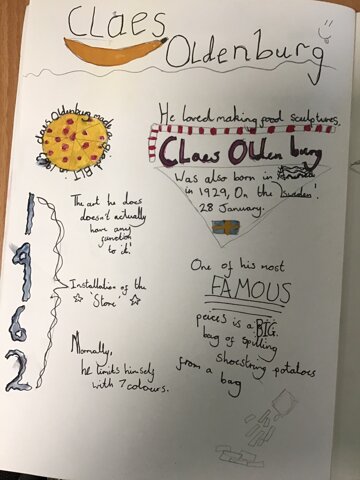 CLAES
OLDENBURG
Claes Oldenburg made
He loved making food sculptures.
CLaes OLden burg
Was also born in America
in 1929, On the Sweden!
28 January.
The art he does
doesn't actually
have any
function
to it!
1962
Installation of the
'Store'
Normally,
he limits himself
with 7 colours.
One of his most
FAMOUS
peices is a BIG
bag of spilling
shoestring potatoes
from a
bag